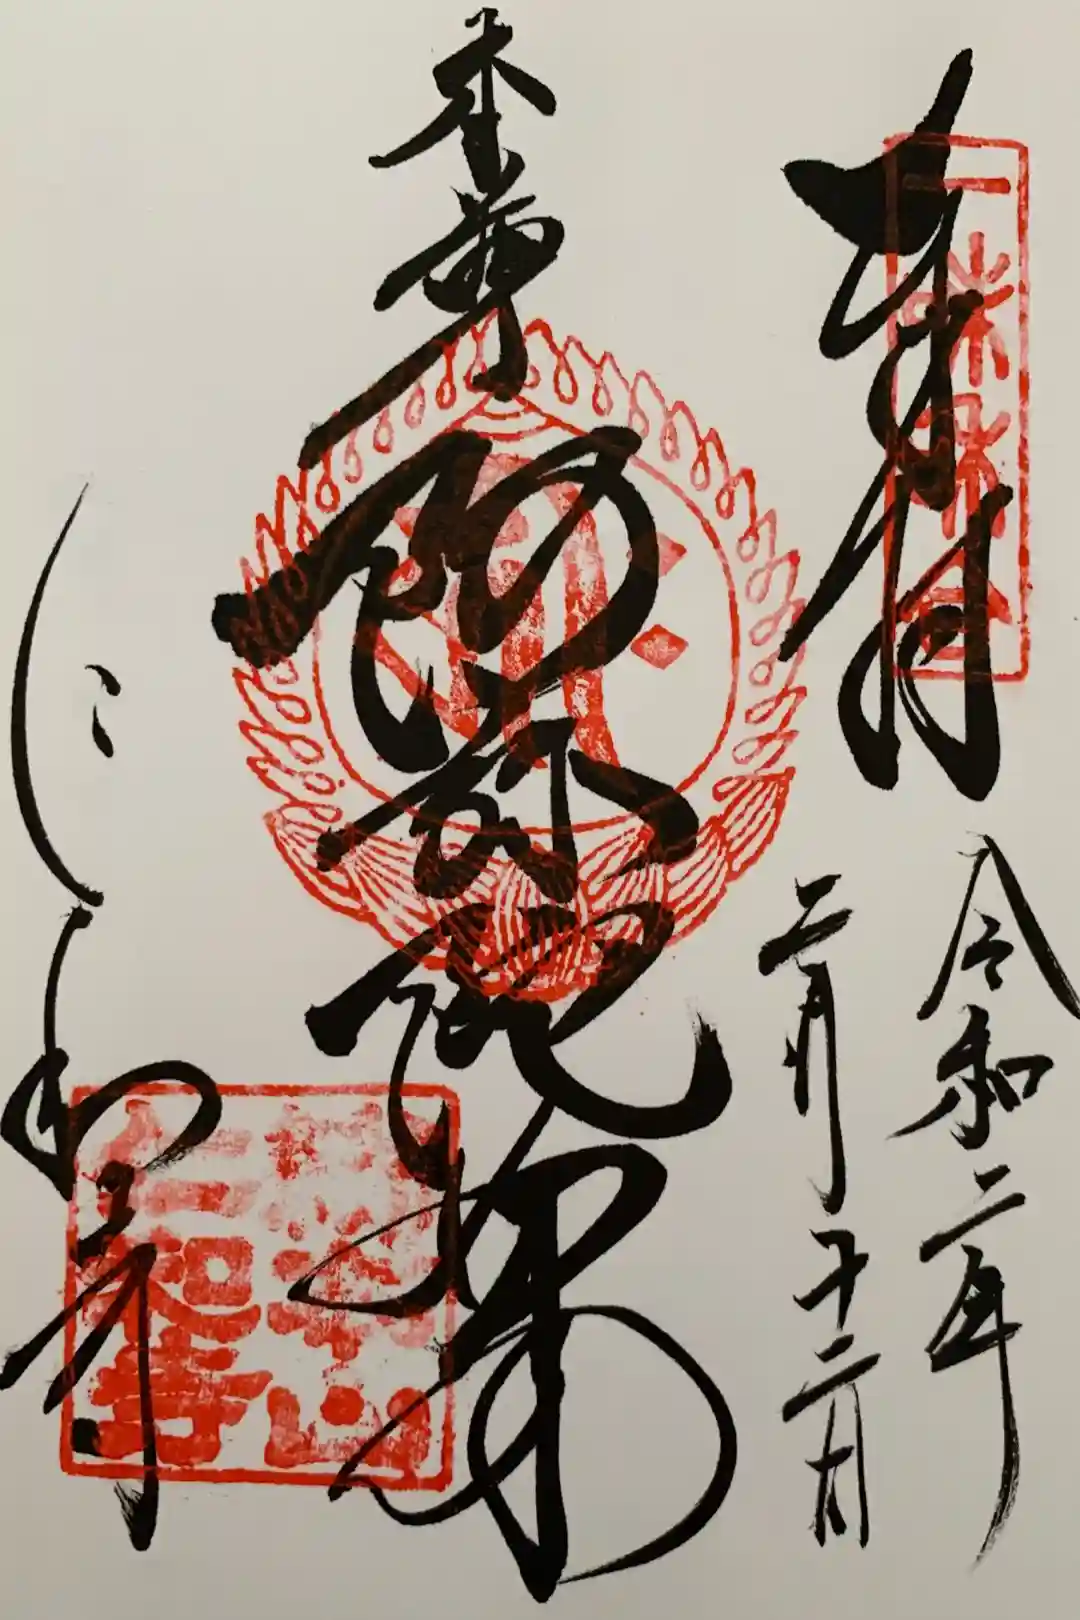 奉拝
令和二年
二月十二日
本尊
阿弥陀如来
仁和寺
總本山
仁和寺